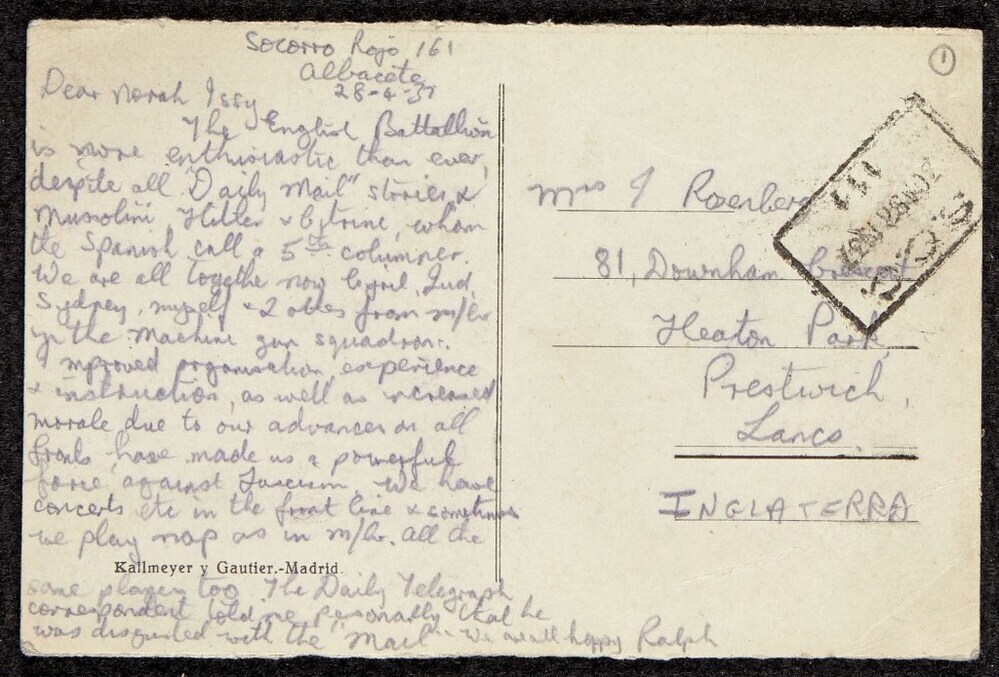 Socorro Rojo 161
Albacete
28-4-37
Dear Norah Issy
The English Battallion
is more enthusiastic than ever,
despite all "Daily Mail" stories &
Mussolini Hitler & Citrine, whom
the Spanish call a 5th columner.
We are all together now Cyril, Jud,
Sydney, myself & 2 others from m/cr
in the machine gun squadron.
Improved organisation, experience
& instruction, as well as increased
morale due to our advances on all
fronts have made us a powerful
force against Fascism. We have
concerts etc in the front line & sometimes
we play nap as in m/cr. All the
Kallmeyer y Gautier.-Madrid
same players too. The Daily Telegraph
correspondent told me personally that he
was disgusted with the "Mail". We are all happy Ralph
1
Mrs I Rosenberg
81, Downham Crescent
Heaton Park,
Prestwich,
Lancs.
INGLATERRA